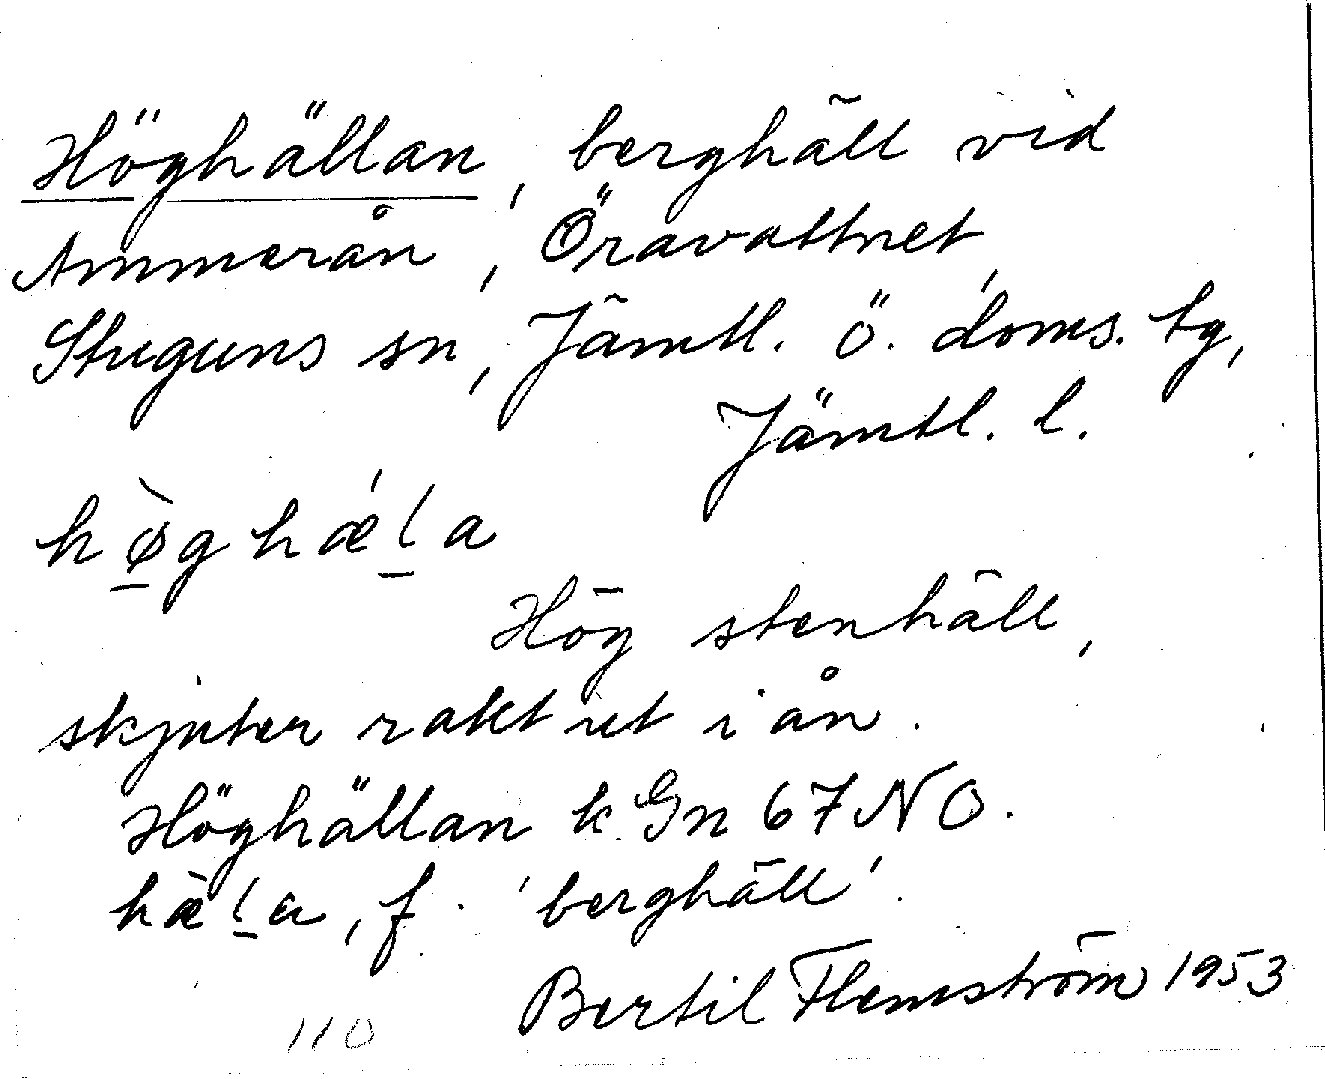 Höghällan, berghäll vid
Ammerån, Öravattnet,
Stuguns sn, Jämtl. ö. doms. tg,
Jämtl. l.
hø̀ghǽla
Hög stenhäll,
skjuter rakt ut i ån.
Höghällan k Gn 67 NO.
hæ̀la, f. 'berghäll'.
Bertil Flemström 1953
110